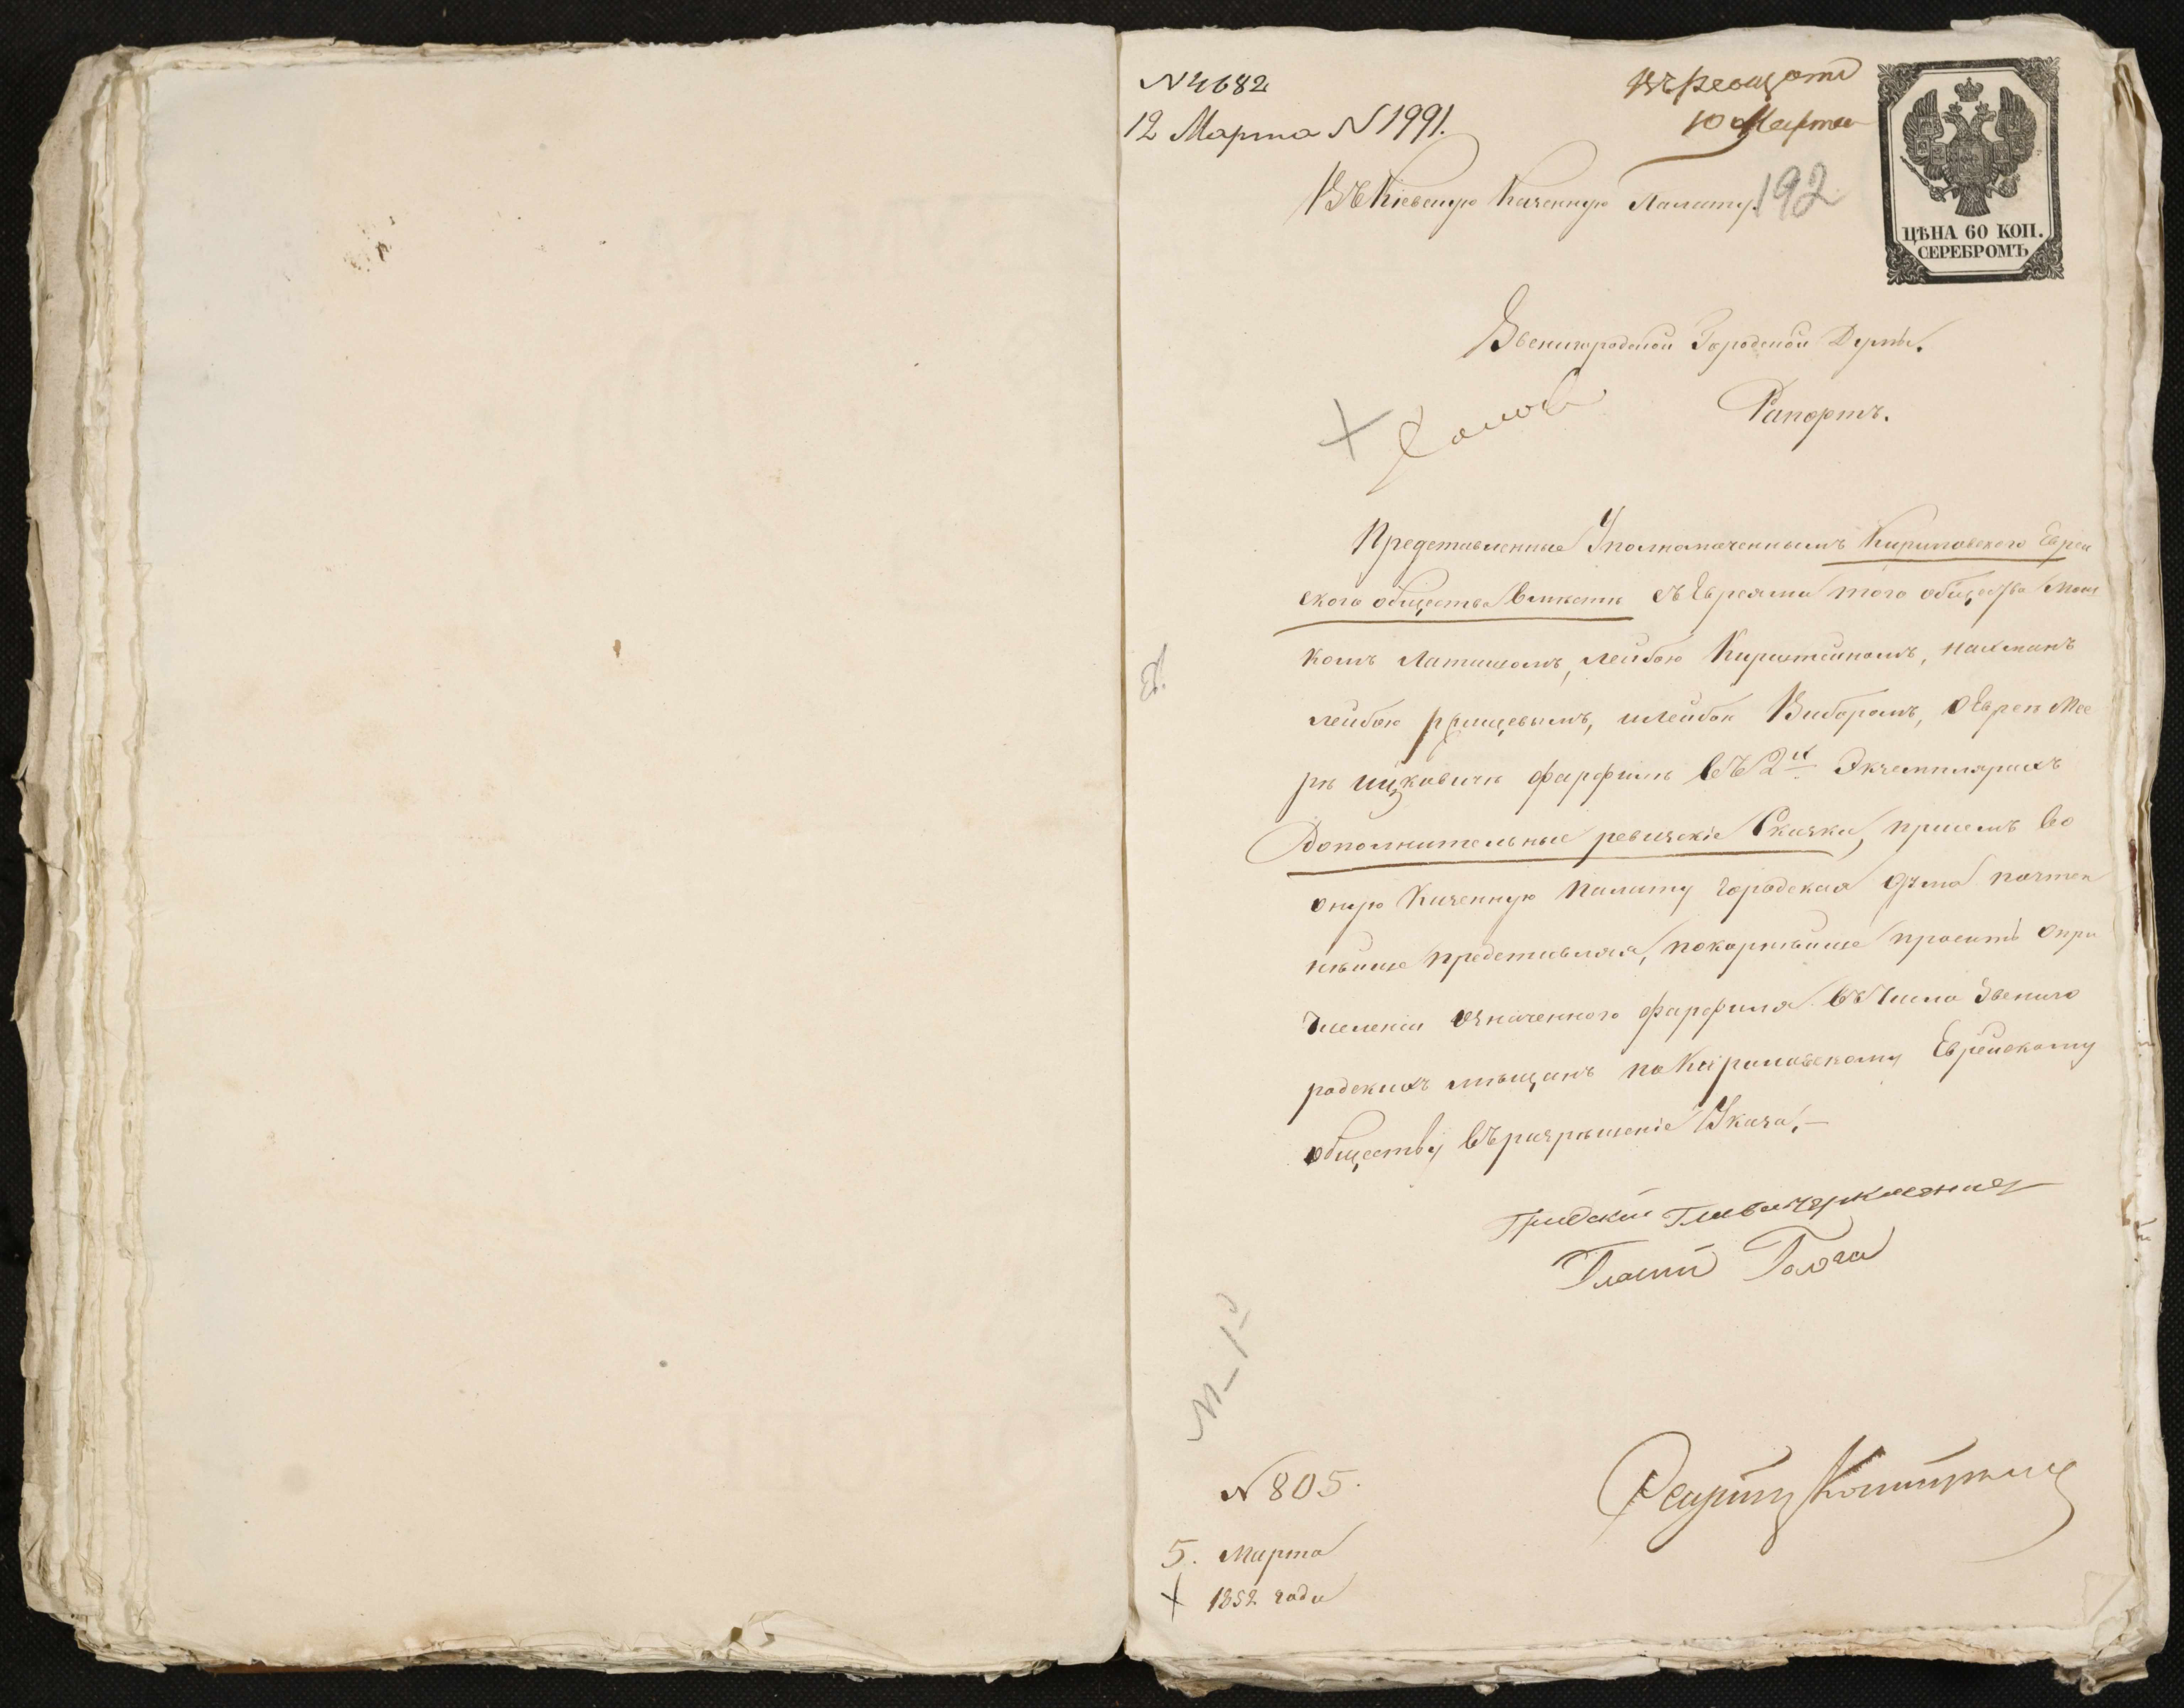 N 4682
12 Марта N 1991.
10 Марта
192
ЦѢНА 60 КОП.
СЕРЕБРОМЪ
Въ Кіевскую Казенную Палату.
Звенигородской Городской Думы.
Рапортъ.
Представленные Уполномоченнымъ Кириловского Еврей
ского общества вмѣсте съ Евреями того общества Мош
комъ Латишомъ, лейбою Кирштейномъ, нахманъ
лейбою, шлейбою Виборомъ, о Евреѣ Мее
рѣ ицковичѣ фарфилѣ въ 2х Экземплярахъ
Дополнительные ревизскіе Сказки, при семъ во
оную Казенную Палату Городская дума почтен
нѣйше представляя, покорнѣйше проситъ о при
численіи означенного фарфиля въ число Звениго
родскихъ мѣщанъ по Кириловскому Еврейскому
обществу въ разрѣшеніе Указа.—
Градскій Глава
Гласный
N 805.
5. Марта
1852 года